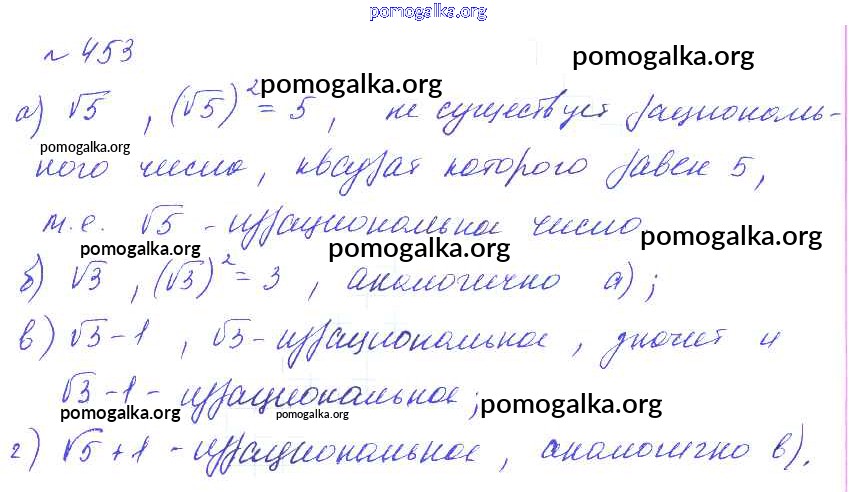 pomogalka.org
№ 453
pomogalka.org
pomogalka.org
а) √5 , (√5)² = 5 , не существует рациональ-
pomogalka.org
ного число, квадрат которого равен 5,
т.е. √5 - иррациональное число
pomogalka.org pomogalka.org pomogalka.org
б) √3 , (√3)² = 3 , аналогично а) ;
в) √3 - 1 , √3 - иррациональное , значит и
√3 - 1 - иррациональное ;
pomogalka.org pomogalka.org pomogalka.org
г) √5 + 1 - иррациональное , аналогично в).